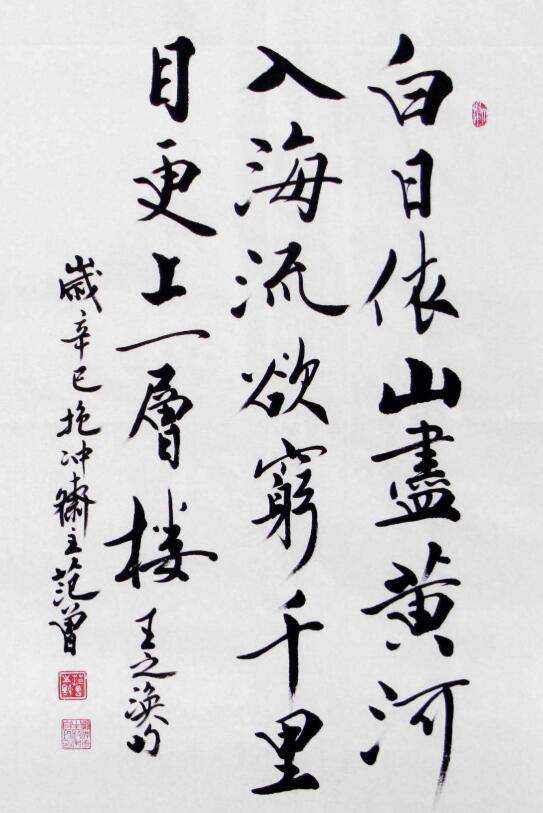 白日依山盡黄河
入海流欲窮千里
目更上一層楼
王之渙句
歲辛巳抱冲齋主范曾